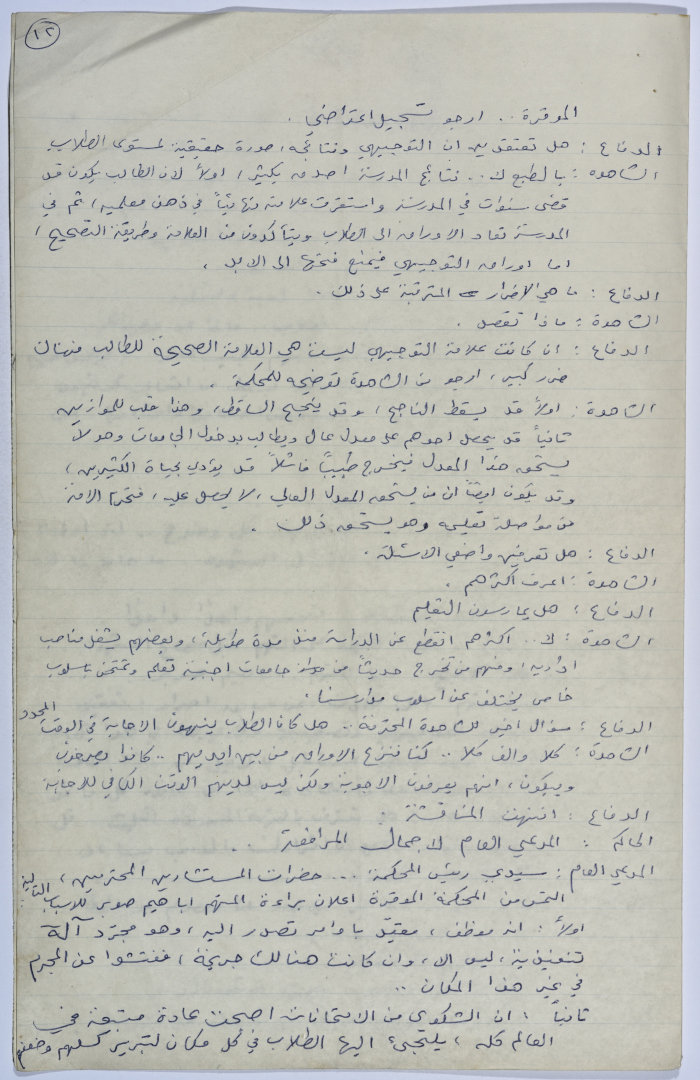 ١٢
الموقرة .. ارجو تسجيل اعتراضي .
الدفاع : هل تعتقدين ان التوجيهي ونتائجه، صورة حقيقية لمستوى الطلاب
الشاهدة : بالطبع لا .. نتائج المدرسة اصدق بكثير، اولاً لان الطالب يكون قد
قضى سنوات في المدرسة واستقرت علامته نهائياً في ذهن معلميه، ثم في
المدرسة تعاد الاوراق الى الطلاب ويتأكدون من العلامة وطريقة التصحيح ،
اما اوراق التوجيهي فيمنع فتحها الى الابد .
الدفاع : ما هي الاضرار المترتبة على ذلك .
الشاهدة : ماذا تقصد .
الدفاع : ان كانت علامة التوجيهي ليست هي العلامة الصحيحة للطالب فهناك
ضرر كبير، ارجو من الشاهدة توضيحه للمحكمة .
الشاهدة : اولاً قد يسقط الناجح، وقد ينجح الساقط، وهذا قلب للموازين
ثانياً قد يحصل احدهم على معدل عال ويطالب بدخول الجامعات وهو لا
يستحق هذا المعدل فيتخرج طبيباً فاشلاً قد يودي بحياة الكثيرين ،
وقد يكون ايضاً ان من يستحق المعدل العالي، لا يحصل عليه، فتحرم الامة
من مواصلة تعليمه وهو يستحق ذلك .
الدفاع : هل تعرفين واضعي الاسئلة .
الشاهدة : اعرف اكثرهم .
الدفاع : هل يمارسون التعليم
الشاهدة : لا .. اكثرهم انقطع عن الدراسة منذ مدة طويلة، وبعضهم يشغل مناصب
ادارية، ومنهم من تخرج حديثاً من جامعات اجنبية تعلم وتمتحن باسلوب
خاص يختلف عن اسلوب مدارسنا .
الدفاع : سؤال اخير للشاهدة المحترمة .. هل كان الطلاب ينهون الاجابة في الوقت المحدد
الشاهدة : كلا والف كلا .. كنا ننزع الاوراق من بين ايديهم .. كانوا يصرخون
ويبكون، انهم يعرفون الاجوبة ولكن ليس لديهم الوقت الكافي للاجابة
الدفاع : انتهت المناقشة .
الحاكم : المدعي العام لاجمال المرافعة . .
المدعي العام : سيدي رئيس المحكمة ... حضرات المستشارين المحترمين ،
التمس من المحكمة الموقرة اعلان براءة المتهم ابراهيم صوبر للاسباب التالية :
اولاً : انه موظف، مقيّد باوامر تصدر اليه، وهو مجرّد آلة
تنفيذية، ليس الا، وان كانت هنالك جريمة، ففتشوا عن المجرم
في غير هذا المكان ..
ثانياً : ان الشكوى من الامتحانات اصبحت عادة متبعة في
العالم كله، يلتجىء اليها الطلاب في كل مكان لتبرير كسلهم وضعفهم